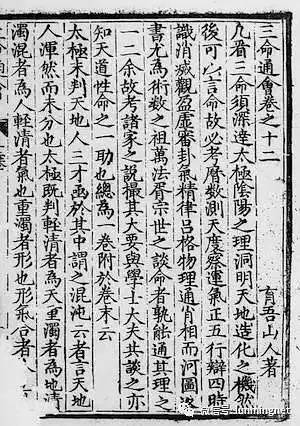 三命通會卷之十二
育吾山人著
凡看三命須深達太極陰陽之理洞明天地造化之機然
後可以言命故必考曆數測天度察運氣正五行辯四時
識消咸觀盈虛審卦氣精律呂格物理通肖相而河圖洛
書尤為術數之祖萬法胥宗世之談命者孰能通其理之
一二余故考諸家之說撮其大要與學士大夫共談之亦
知天道性命之一助也總為一卷附於卷末云
太極未判天地人三才函於其中謂之混沌云者言天地
人渾然而未分也太極既判輕清者為天重濁者為地清
濁混者為人輕清者氣也重濁者形也形氣合者人
微信号: lunmingnet